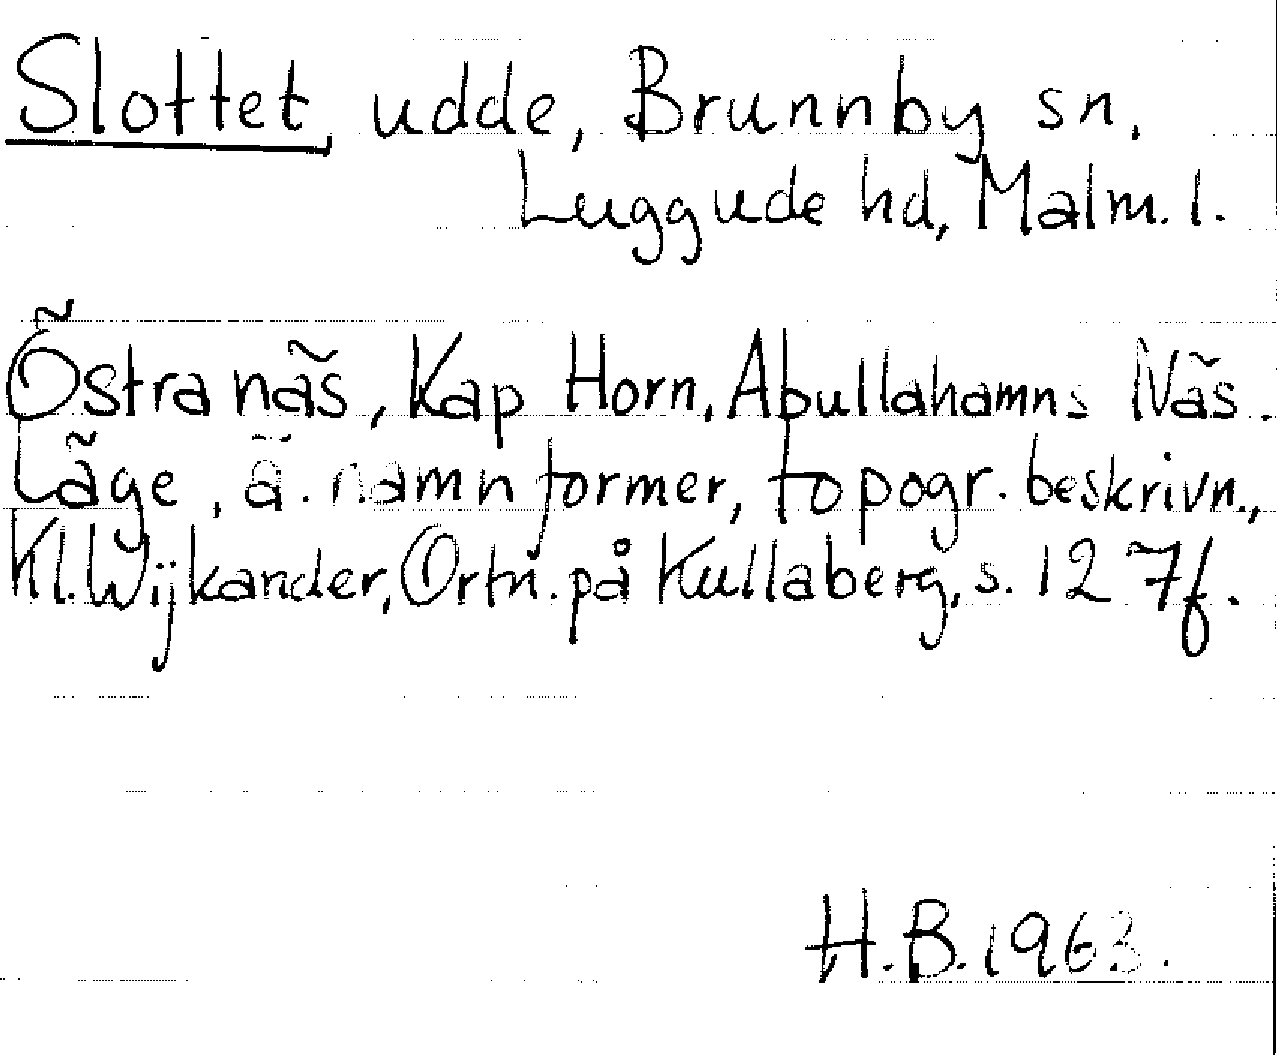 Slottet, udde, Brunnby sn,
Luggude hd, Malm. l.
Östra näs, Kap Horn, Abullahamns Näs.
Läge, ä. namnformer, topogr. beskrivn.,
Kl. Wijkander, Ortn. på Kullaberg, s. 127f.
H.B. 1963.